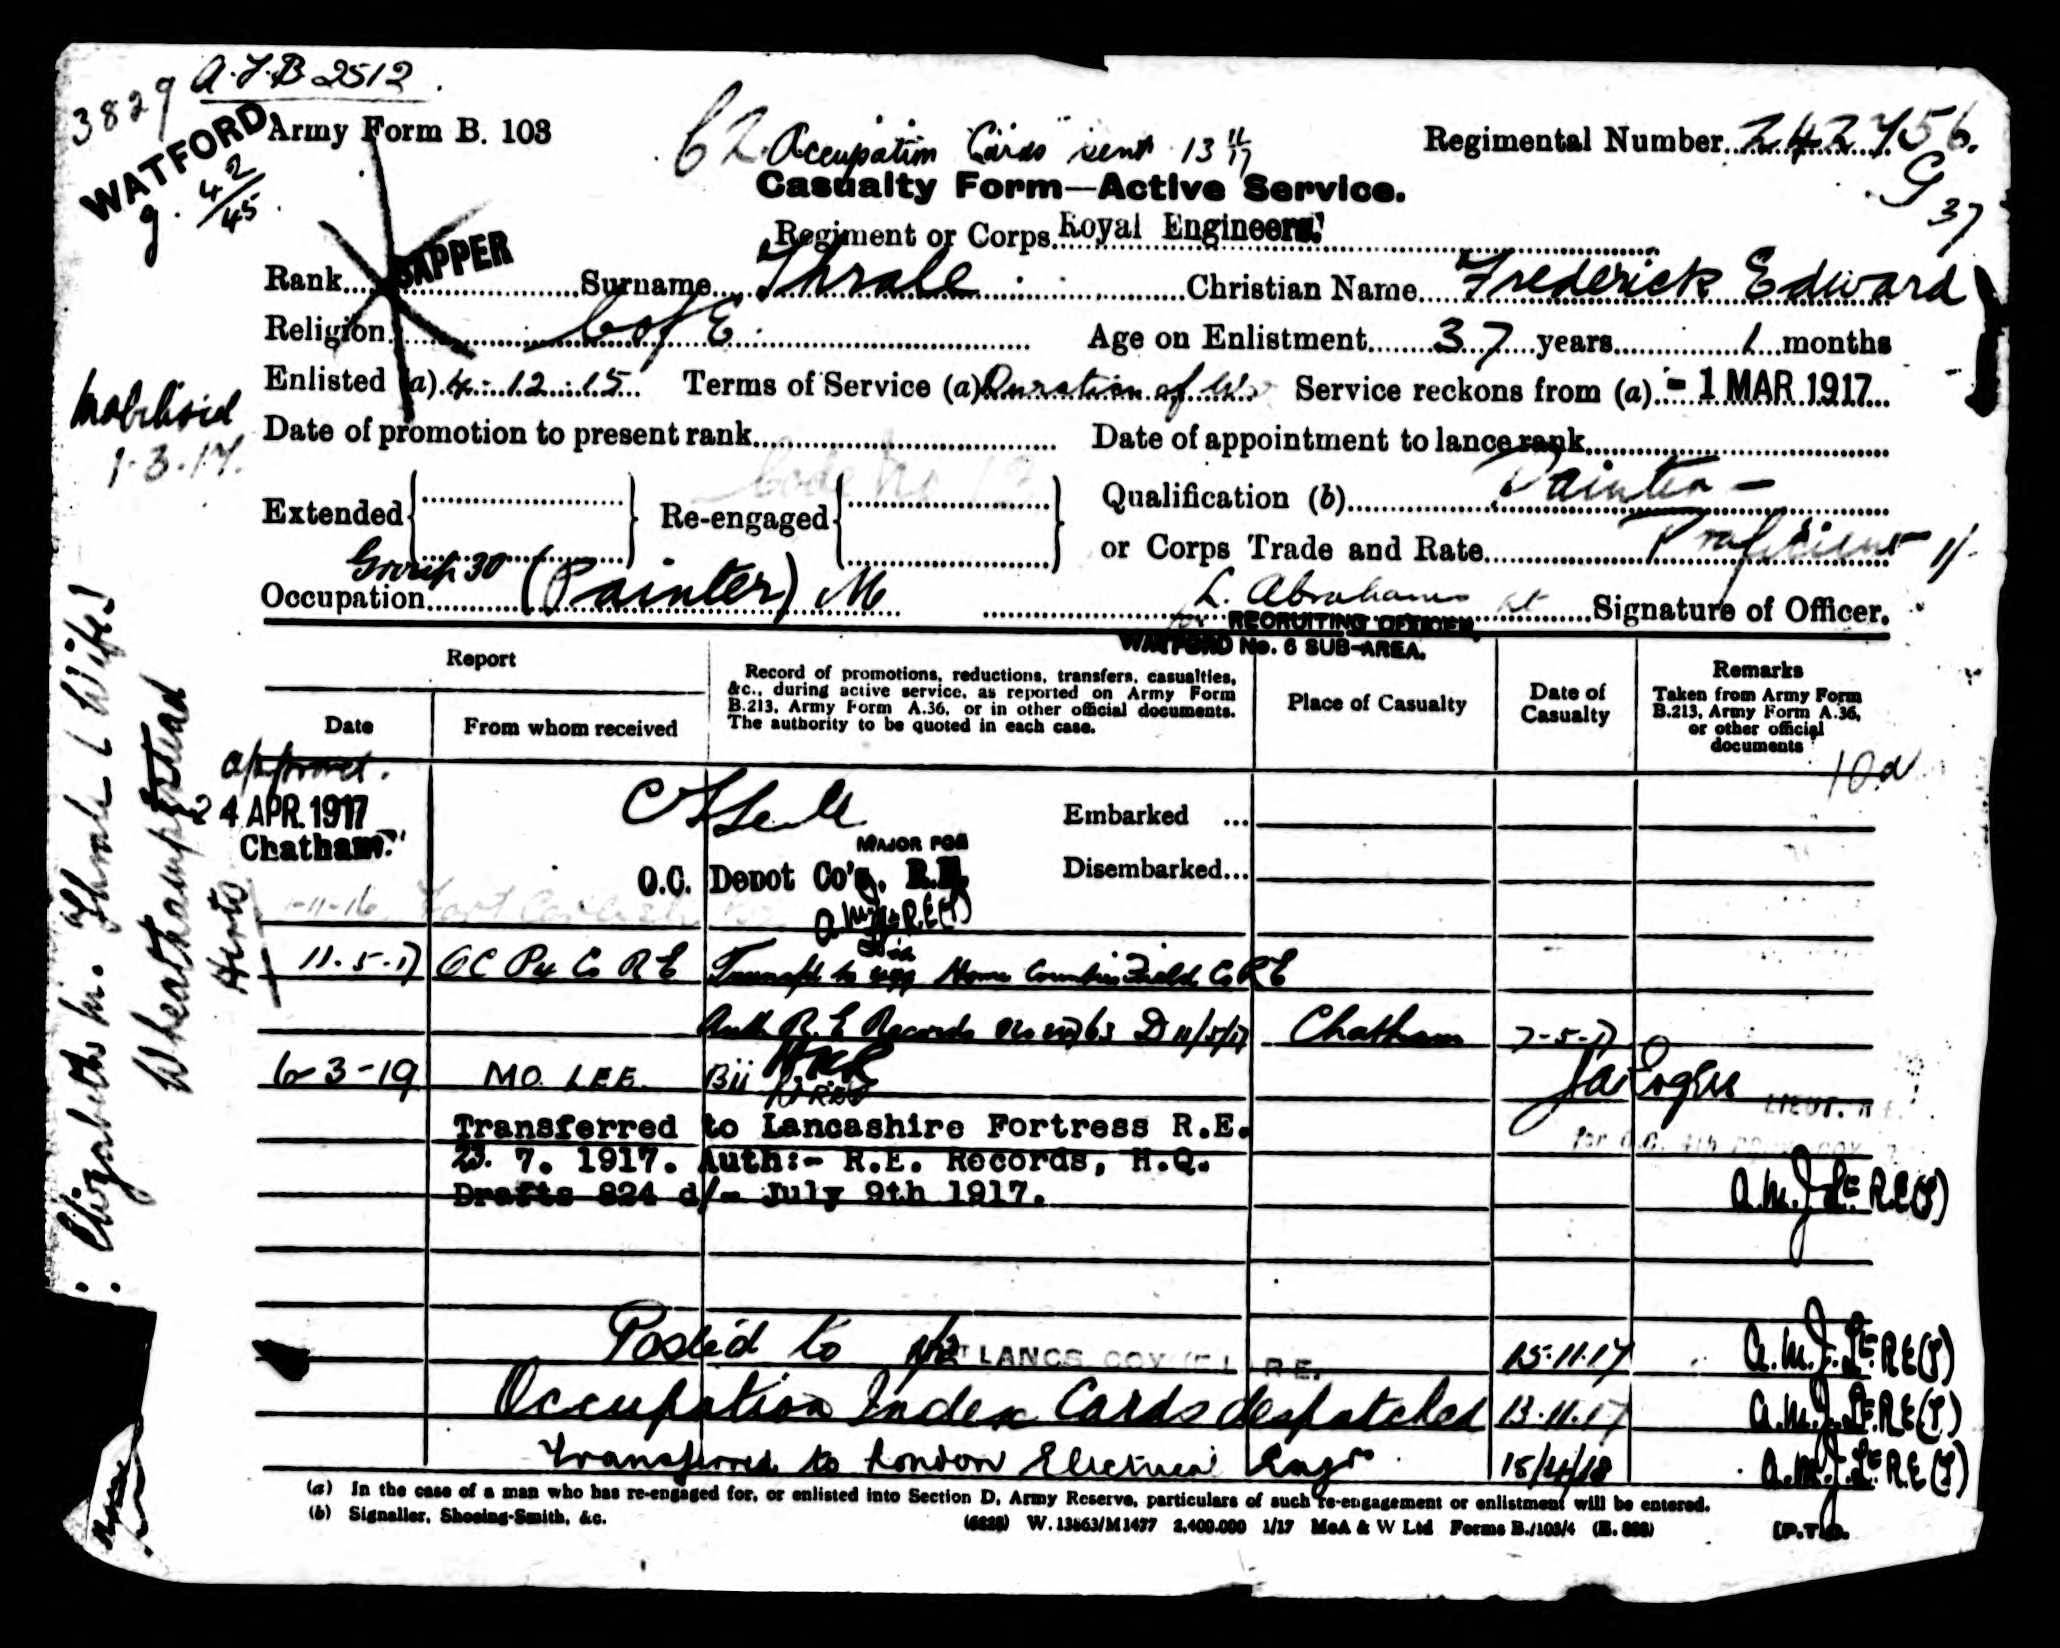 A.F.B 2512.
3829
WATFORD
g. 42/45
Army Form B. 103
62 Occupation Cards sent 13 11/17
Regimental Number 242756.
G 37
Casualty Form—Active Service.
Regiment or Corps Royal Engineers.
Rank SAPPER Surname Thrale Christian Name Frederick Edward
Religion C of E Age on Enlistment 37 years 1 months
Enlisted (a) 4.12.15 Terms of Service (a) Duration of War Service reckons from (a) - 1 MAR 1917
Mobilised
1.3.17.
Date of promotion to present rank Date of appointment to lance rank
Code No 13
Extended Re-engaged Qualification (b) Painter -
or Corps Trade and Rate Proficient 1/-
Group 30
Occupation (Painter) M L. Abrahams Lt Signature of Officer.
for RECRUITING OFFICER,
WATFORD No. 6 SUB-AREA.
Elizabeth M. Thrale (Wife)
Wheathampstead
Herts
Report
Date
From whom received
Record of promotions, reductions, transfers, casualties,
&c., during active service, as reported on Army Form
B.213, Army Form A.36, or in other official documents.
The authority to be quoted in each case.
Place of Casualty
Date of
Casualty
Remarks
Taken from Army Form
B.213, Army Form A.36,
or other official
documents
10a
approved.
24 APR. 1917
Chatham
Embarked ...
MAJOR FOR
O.C. Depot Co's. R.E.
Disembarked...
11.5.17 OC Co R E Transfd to Home Counties Field Co RE
Auth R.E Records D 11/5/17 Chatham 7-5-17
6-3-19 MO. LEE. Bii
LIEUT. R.E.
Transferred to Lancashire Fortress R.E.
23. 7. 1917. Auth:- R.E. Records, H.Q.
Drafts 824 d/- July 9th 1917.
A.M.J. Lt. R.E(T)
Posted to 1/2 LANCS COY R.E. 15.11.17 A.M.J. Lt. RE(T)
Occupation Index Cards despatched 13.11.17 A.M.J. Lt. RE(T)
Transferred to London Electrical Engrs. 15/4/18 A.M.J. Lt RE(T)
(a) In the case of a man who has re-engaged for, or enlisted into Section D, Army Reserve, particulars of such re-engagement or enlistment will be entered.
(b) Signaller, Shoeing-Smith, &c.
W. 13863/M1477 2,400,000 1/17 McA & W Ltd Forms B./103/4
[P.T.O.